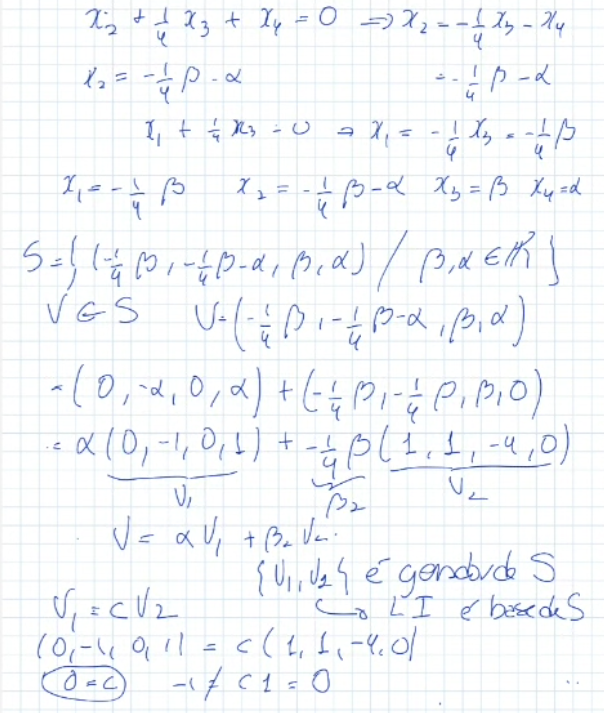 x₂ + 1/4 x₃ + x₄ = 0 ⇒ x₂ = -1/4 x₃ - x₄
x₂ = -1/4 β - α = -1/4 β - α
x₁ + 1/4 x₃ = 0 ⇒ x₁ = -1/4 x₃ = -1/4 β
x₁ = -1/4 β x₂ = -1/4 β - α x₃ = β x₄ = α
S = { (-1/4 β, -1/4 β - α, β, α) / β, α ∈ ℝ }
V ∈ S V = (-1/4 β, -1/4 β - α, β, α)
= (0, -α, 0, α) + (-1/4 β, -1/4 β, β, 0)
= α (0, -1, 0, 1) + -1/4 β (1, 1, -4, 0)
V₁ β₂ V₂
V = α V₁ + β₂ V₂.
{V₁, V₂} é gerador de S
V₁ = c V₂ ↳ LI é base de S
(0, -1, 0, 1) = c (1, 1, -4, 0)
0 = c -1 ≠ c 1 = 0